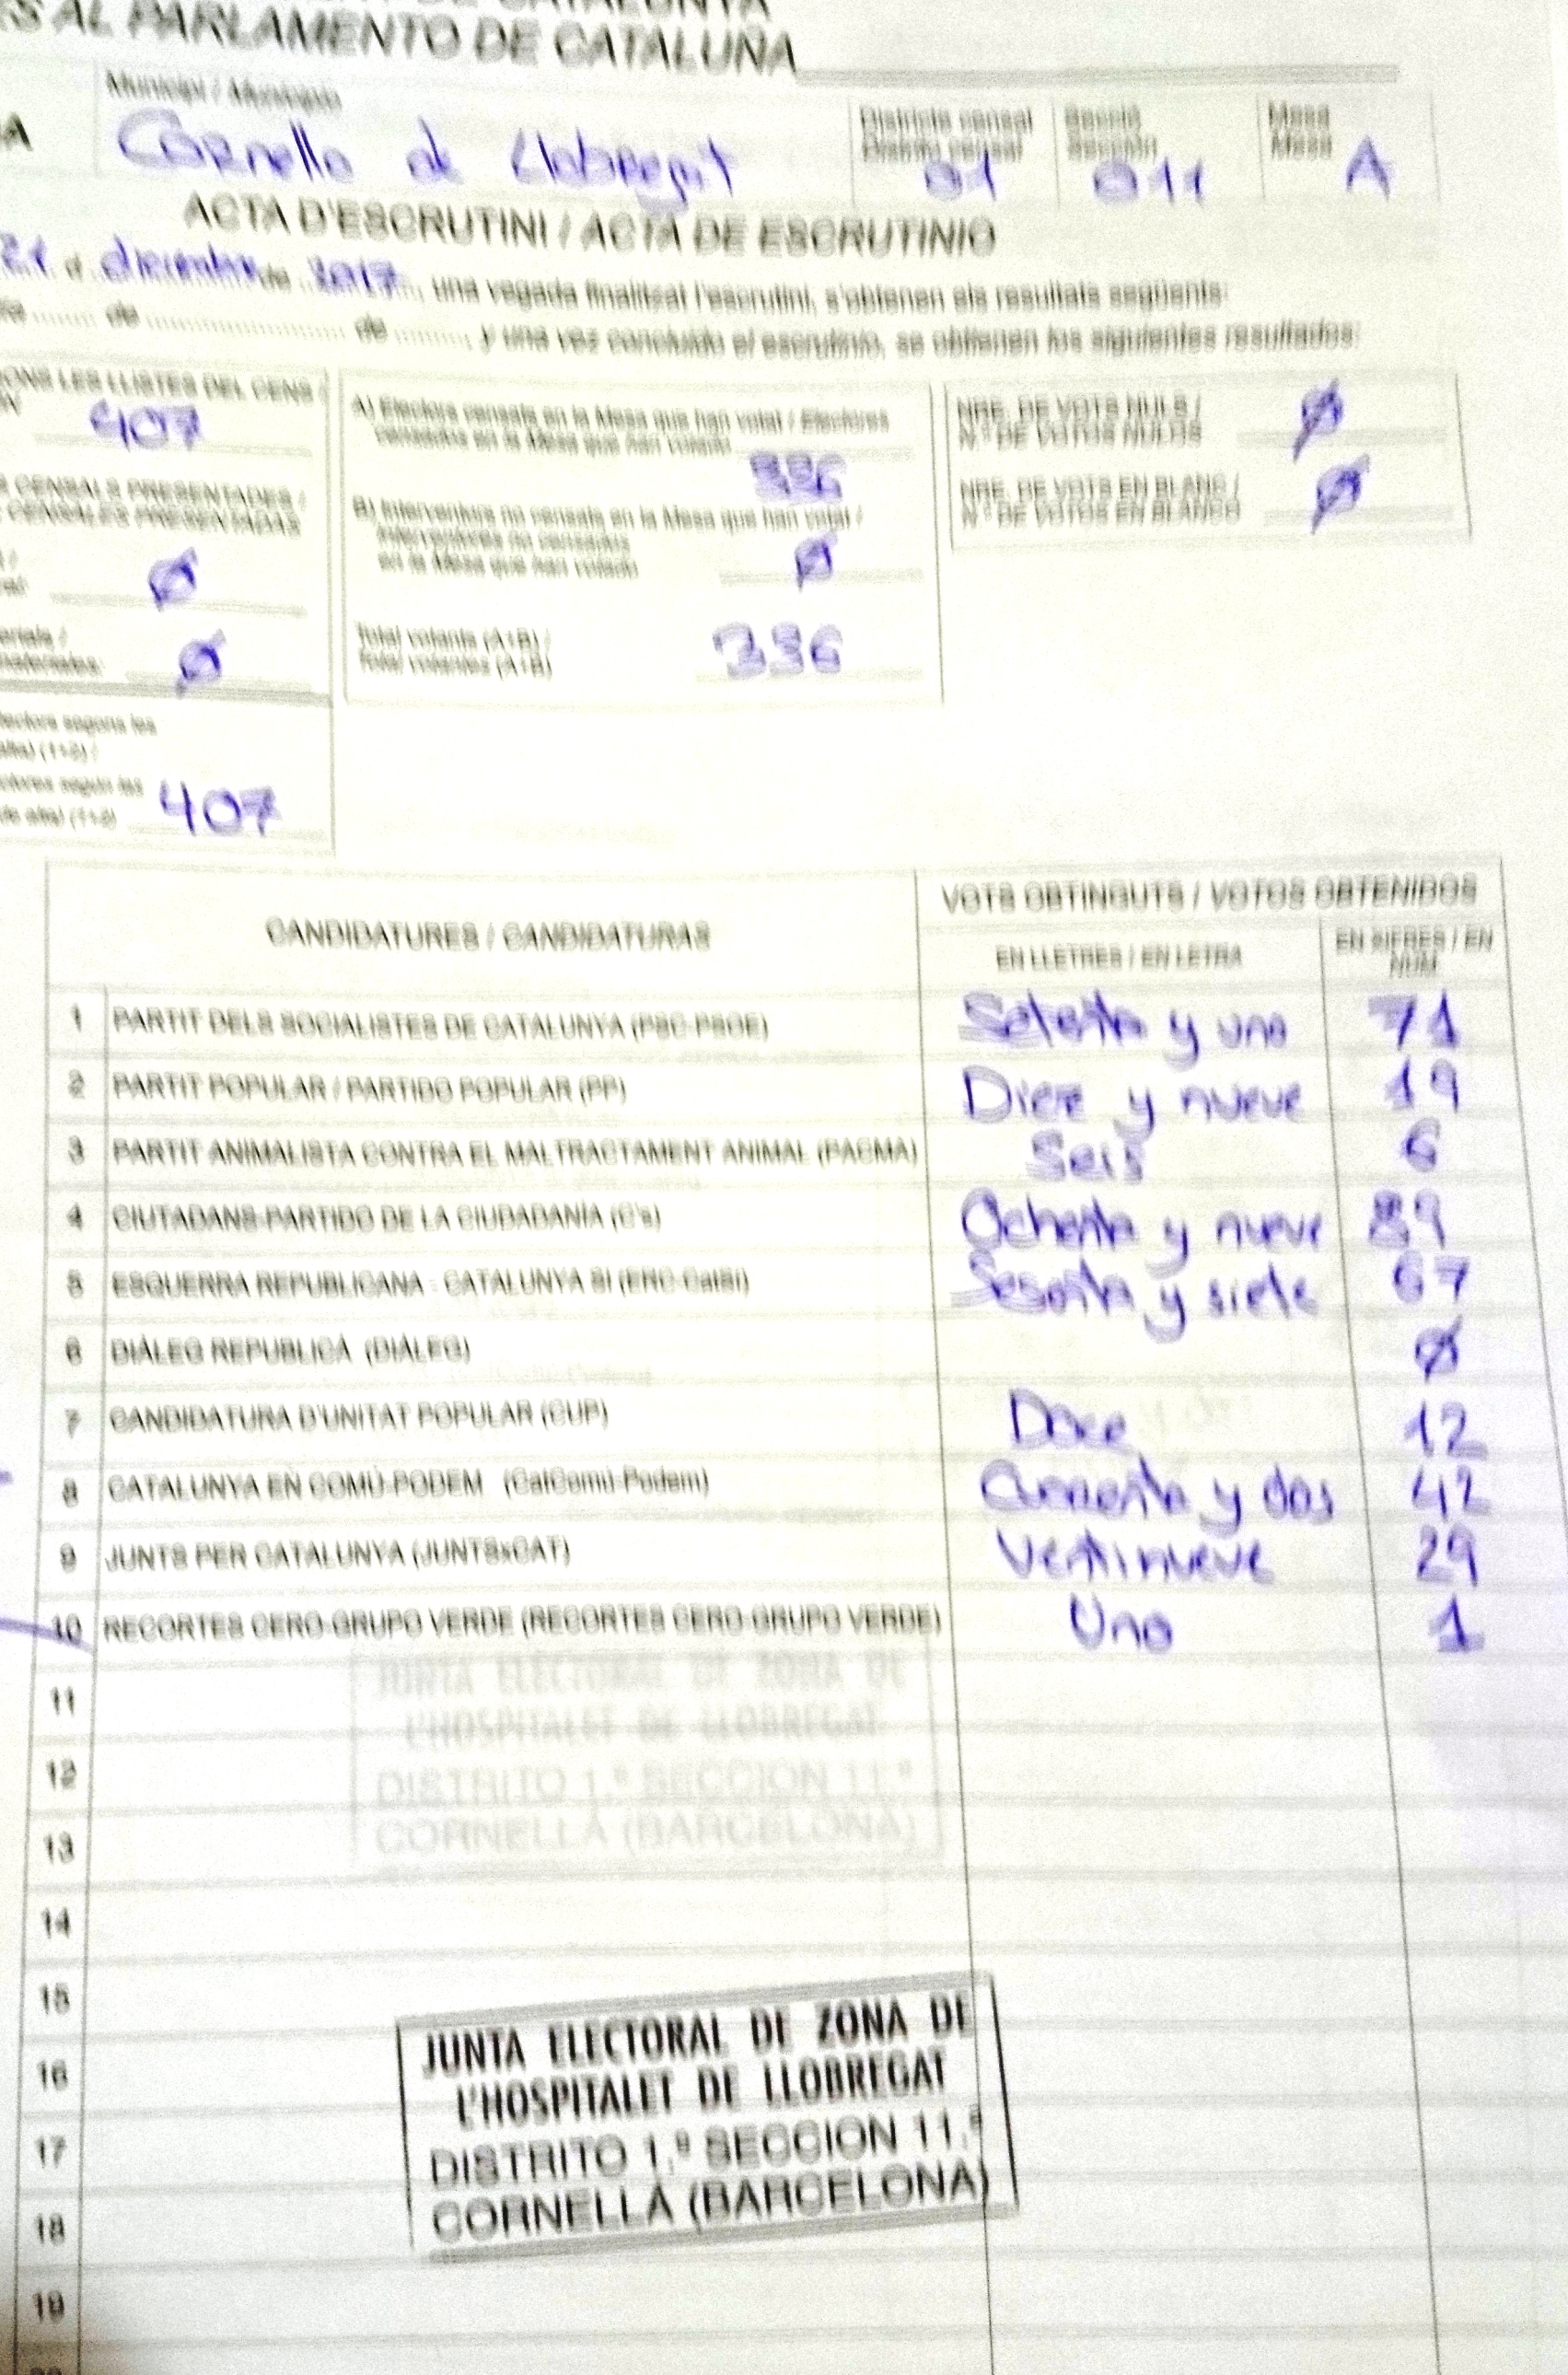 S AL PARLAMENTO DE CATALUÑA
Municipi / Municipio
Cornella de Llobregat
Districte censal
Distrito censal
01
Secció
Sección
011
Mesa
Mesa
A
ACTA D'ESCRUTINI / ACTA DE ESCRUTINIO
21 d diciembre de 2017, una vegada finalitzat l'escrutini, s'obtenen els resultats següents:
de de , y una vez concluido el escrutinio, se obtienen los siguientes resultados:
ONS LES LLISTES DEL CENS /
407
CENSALS PRESENTADES /
CENSALES PRESENTADAS
Ø
Ø
(1+2) /
407
A) Electors censats en la Mesa que han votat / Electores
censados en la Mesa que han votado
336
B) Interventors no censats en la Mesa que han votat /
Interventores no censados
en la Mesa que han votado
Ø
Total votants (A+B) /
Total votantes (A+B)
336
NRE. DE VOTS NULS /
N.º DE VOTOS NULOS
Ø
NRE. DE VOTS EN BLANC /
N.º DE VOTOS EN BLANCO
Ø
CANDIDATURES / CANDIDATURAS
VOTS OBTINGUTS / VOTOS OBTENIDOS
EN LLETRES / EN LETRA
EN XIFRES / EN
NÚM.
1 PARTIT DELS SOCIALISTES DE CATALUNYA (PSC-PSOE) Setenta y uno 71
2 PARTIT POPULAR / PARTIDO POPULAR (PP) Diez y nueve 19
3 PARTIT ANIMALISTA CONTRA EL MALTRACTAMENT ANIMAL (PACMA) Seis 6
4 CIUTADANS-PARTIDO DE LA CIUDADANÍA (C's) Ochenta y nueve 89
5 ESQUERRA REPUBLICANA - CATALUNYA SÍ (ERC-CatSí) Sesenta y siete 67
6 DIÀLEG REPUBLICÀ (DIÀLEG) Ø
7 CANDIDATURA D'UNITAT POPULAR (CUP) Doce 12
8 CATALUNYA EN COMÚ-PODEM (CatComú-Podem) Cuarenta y dos 42
9 JUNTS PER CATALUNYA (JUNTSxCAT) Ventinueve 29
10 RECORTES CERO-GRUPO VERDE (RECORTES CERO-GRUPO VERDE) Uno 1
JUNTA ELECTORAL DE ZONA DE
11
L'HOSPITALET DE LLOBREGAT
12
DISTRITO 1.º SECCION 11.ª
13
CORNELLÀ (BARCELONA)
14
15
JUNTA ELECTORAL DE ZONA DE
16
L'HOSPITALET DE LLOBREGAT
17
DISTRITO 1.º SECCION 11.ª
18
CORNELLÀ (BARCELONA)
19